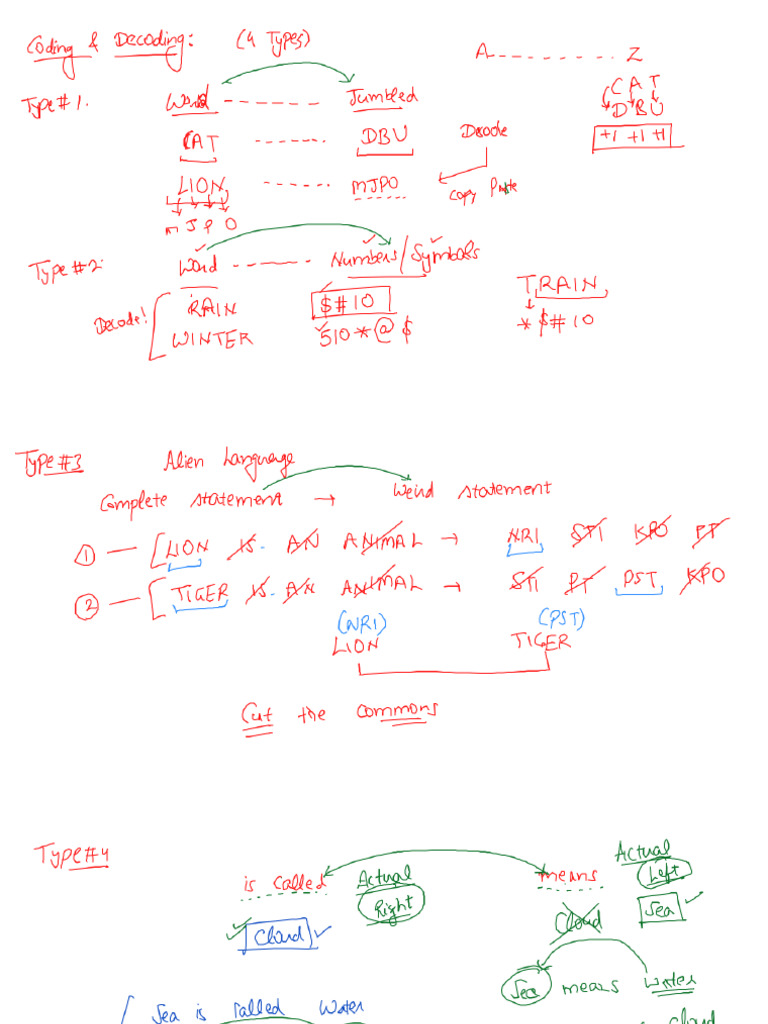 Coding & Decoding: (4 Types)
A - - - - - - - - Z
Type #1. Word - - - - - - - Jumbled
CAT
DBU
+1 +1 +1
CAT - - - - - - DBU
Decode
LION - - - - - - MJPO
Copy Paste
M J P O
Type #2. Word - - - - - - Numbers/Symbols
Decode!
RAIN $#10
WINTER 510*@$
TRAIN
*$#10
Type #3 Alien Language
Complete statement → Weird statement
1 — [LION IS AN ANIMAL → NRI STI KPO PT
2 — [TIGER IS AN ANIMAL → STI PT PST KPO
(NRI) (PST)
LION TIGER
Cut the commons
Type #4
is called Actual
Right
means Actual
Left
Cloud
Cloud
Sea
Sea means water
Sea is called Water
cloud